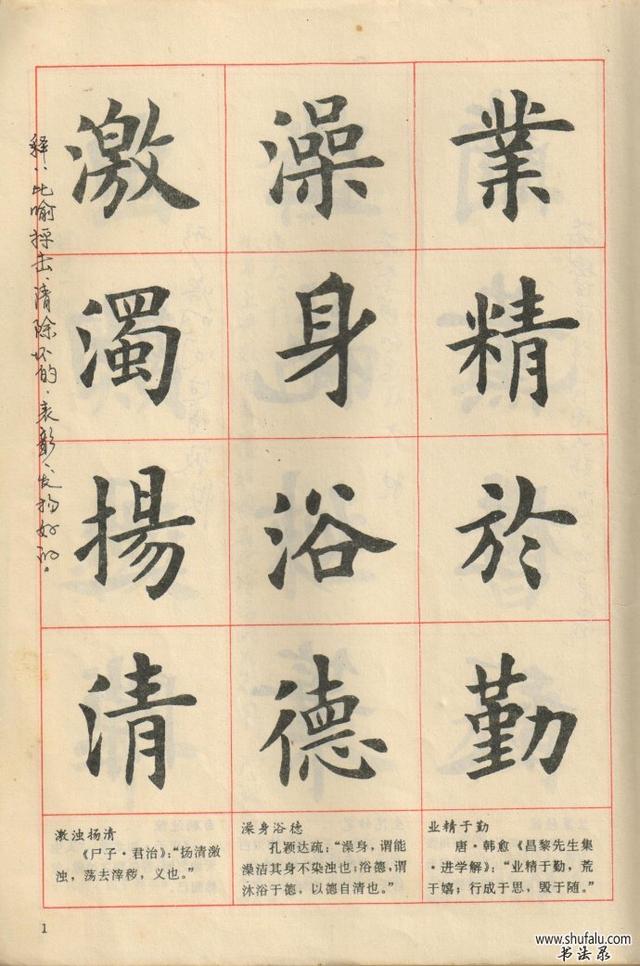 業精於勤
澡身浴德
激濁揚清
释：比喻抨击、清除坏的，表彰、发扬好的。
激浊扬清
《尸子·君治》：“扬清激
浊，荡去滓秽，义也。”
澡身浴德
孔颖达疏：“澡身，谓能
澡洁其身不染浊也；浴德，谓
沐浴于德，以德自清也。”
业精于勤
唐·韩愈《昌黎先生集
·进学解》：“业精于勤，荒
于嬉；行成于思，毁于随。”
1
www.shufalu.com
书法录